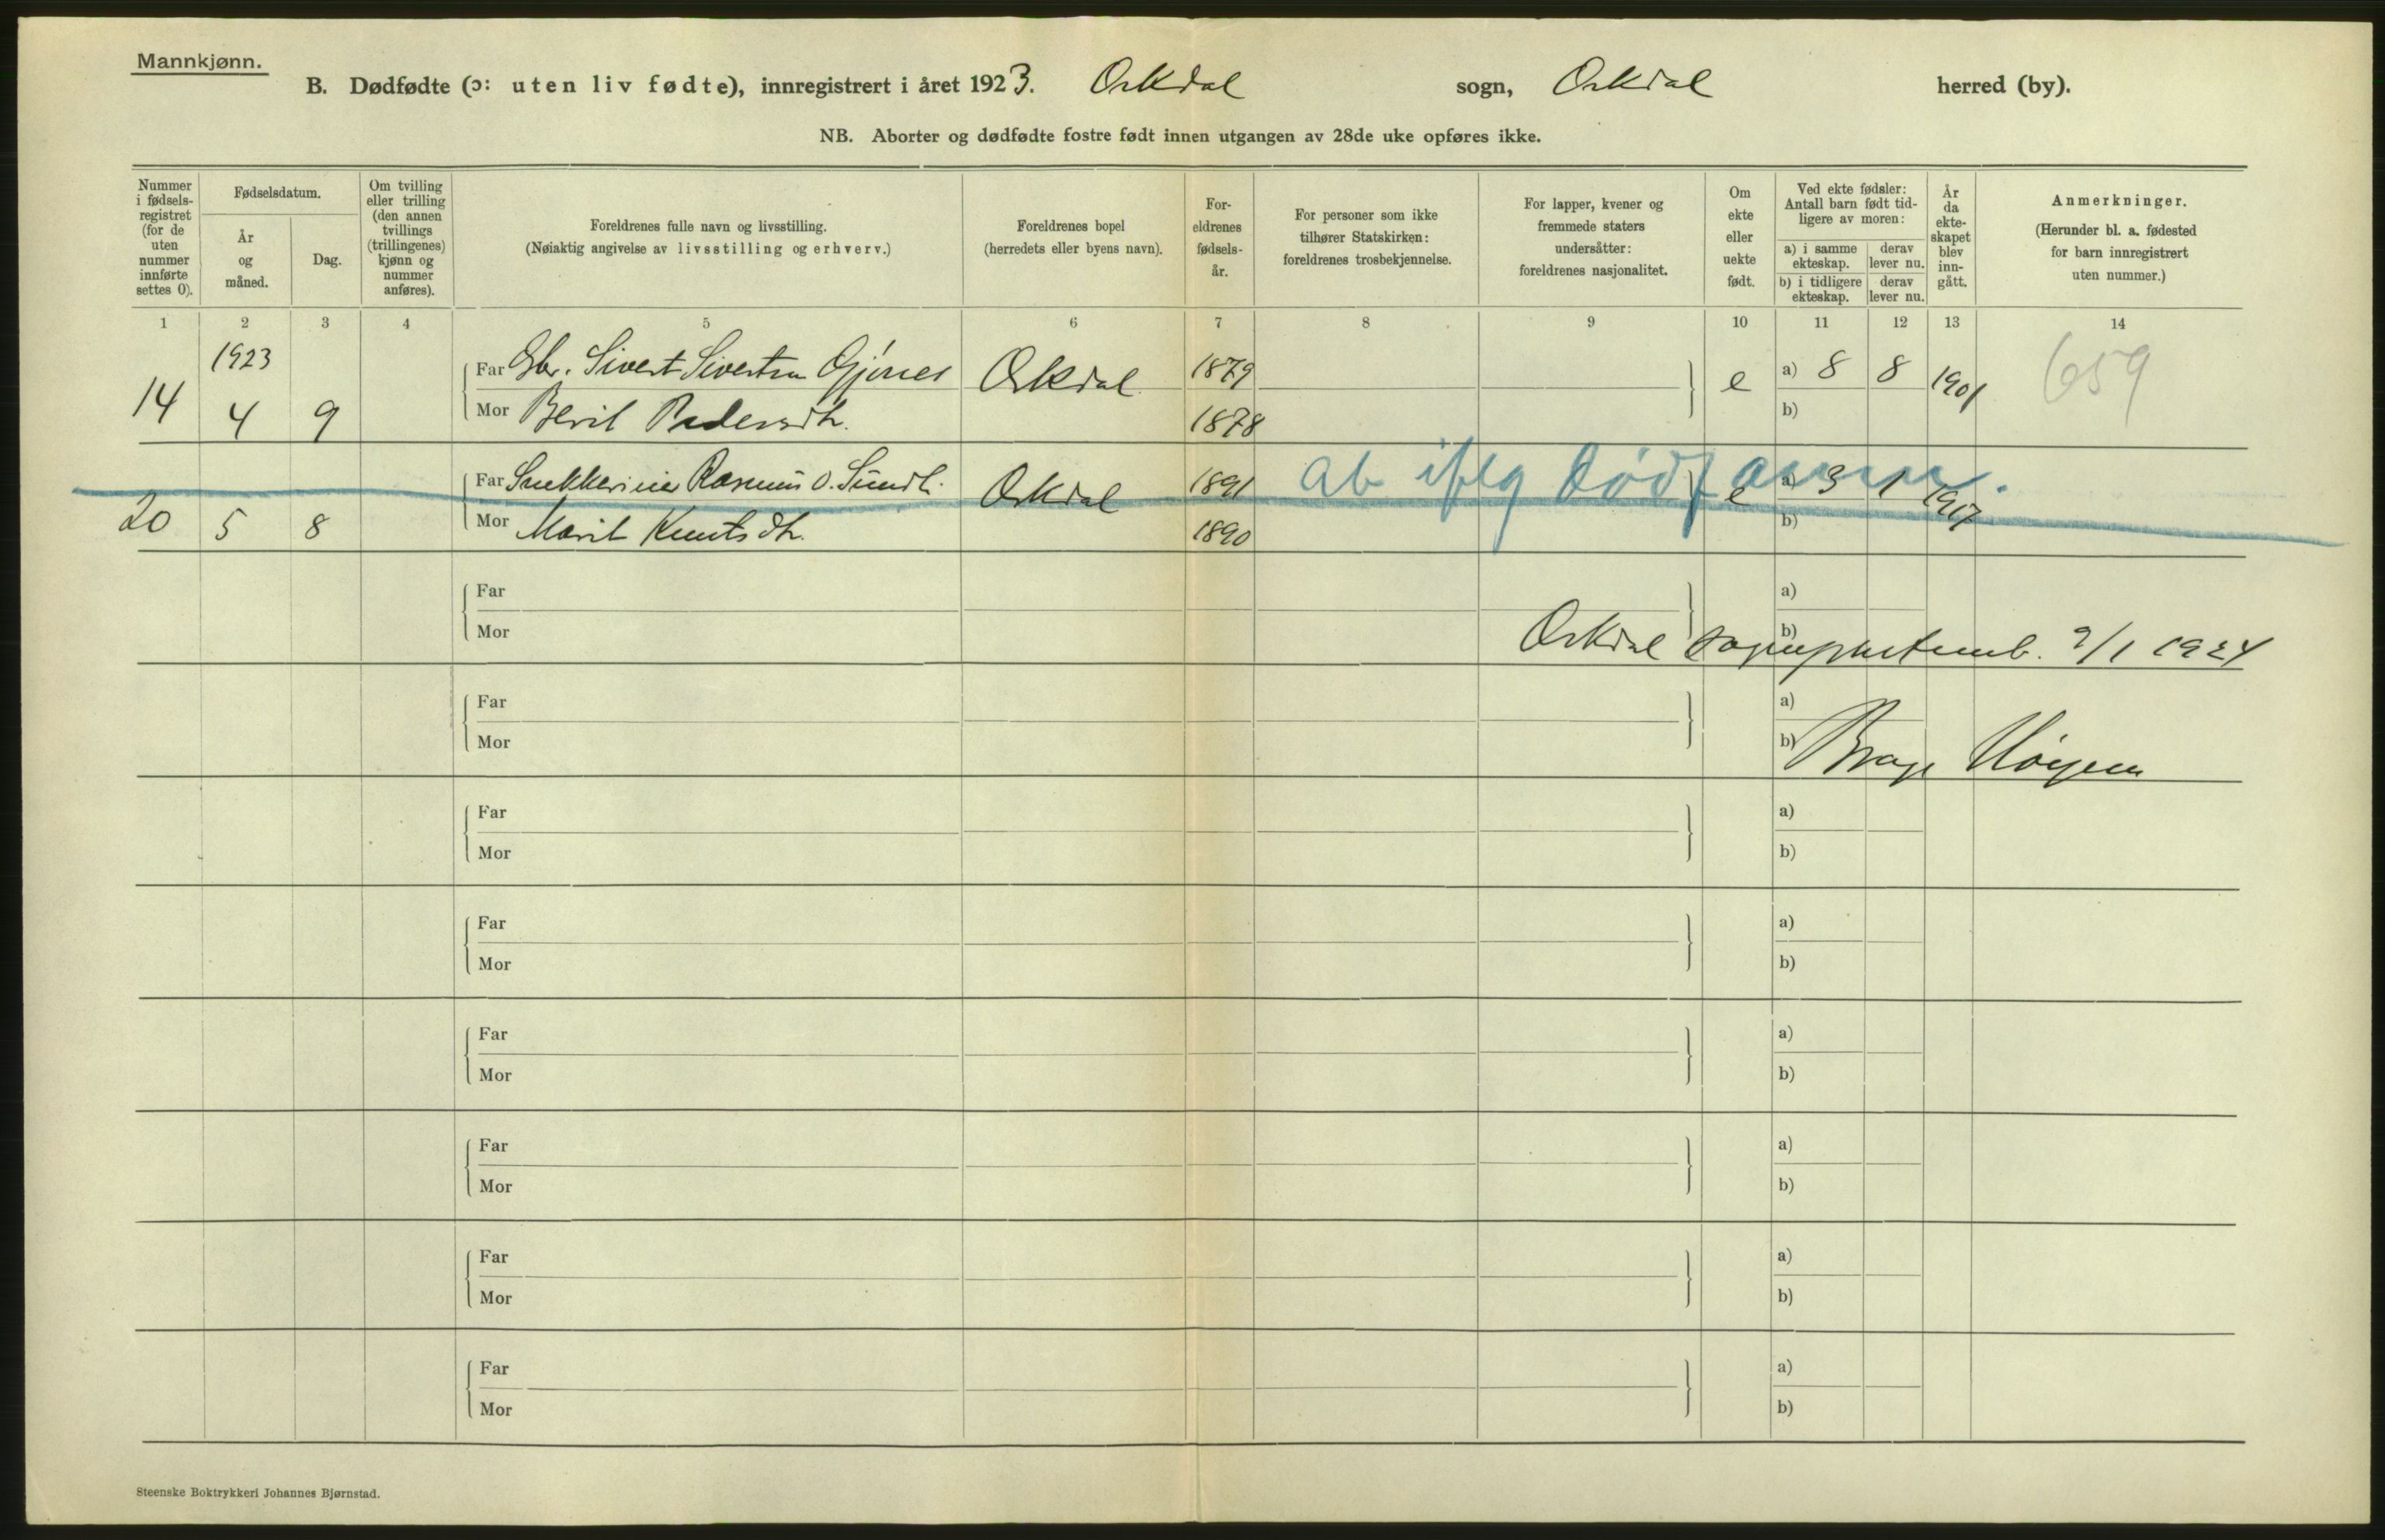 Mannkjønn.
B. Dødfødte (ɔ: uten liv fødte), innregistrert i året 1923. Orkdal sogn, Orkdal herred (by).
NB. Aborter og dødfødte fostre født innen utgangen av 28de uke opføres ikke.
Nummer i fødsels-registret (for de uten nummer innførte settes 0).
Fødselsdatum.
År og måned.
Dag.
Om tvilling eller trilling (den annen tvillings (trillingenes) kjønn og nummer anføres).
Foreldrenes fulle navn og livsstilling.
(Nøiaktig angivelse av livsstilling og erhverv.)
Foreldrenes bopel
(herredets eller byens navn).
For-eldrenes fødsels-år.
For personer som ikke tilhører Statskirken: foreldrenes trosbekjennelse.
For lapper, kvener og fremmede staters undersåtter: foreldrenes nasjonalitet.
Om ekte eller uekte født.
Ved ekte fødsler: Antall barn født tid-ligere av moren:
a) i samme ekteskap.
derav lever nu.
b) i tidligere ekteskap.
derav lever nu.
År da ekte-skapet blev inn-gått.
Anmerkninger.
(Herunder bl. a. fødested for barn innregistrert uten nummer.)
1 2 3 4 5 6 7 8 9 10 11 12 13 14
1923
14 4 9
Far Gbr. Sivert Sivertsen Gjønes Orkdal 1879 e a) 8 8 1901 659
Mor Beril Pedersdtr. 1878 b)
20 5 8
Far Rasmus O. Orkdal 1891 e a) 3 1 1917
Mor Marit Knutsdtr. 1890 b)
ab iflg
Far a)
Mor b)
Orkdal 9/1 1924
Far a)
Mor b)
Far a)
Mor b)
Far a)
Mor b)
Far a)
Mor b)
Far a)
Mor b)
Far a)
Mor b)
Far a)
Mor b)
Steenske Boktrykkeri Johannes Bjørnstad.